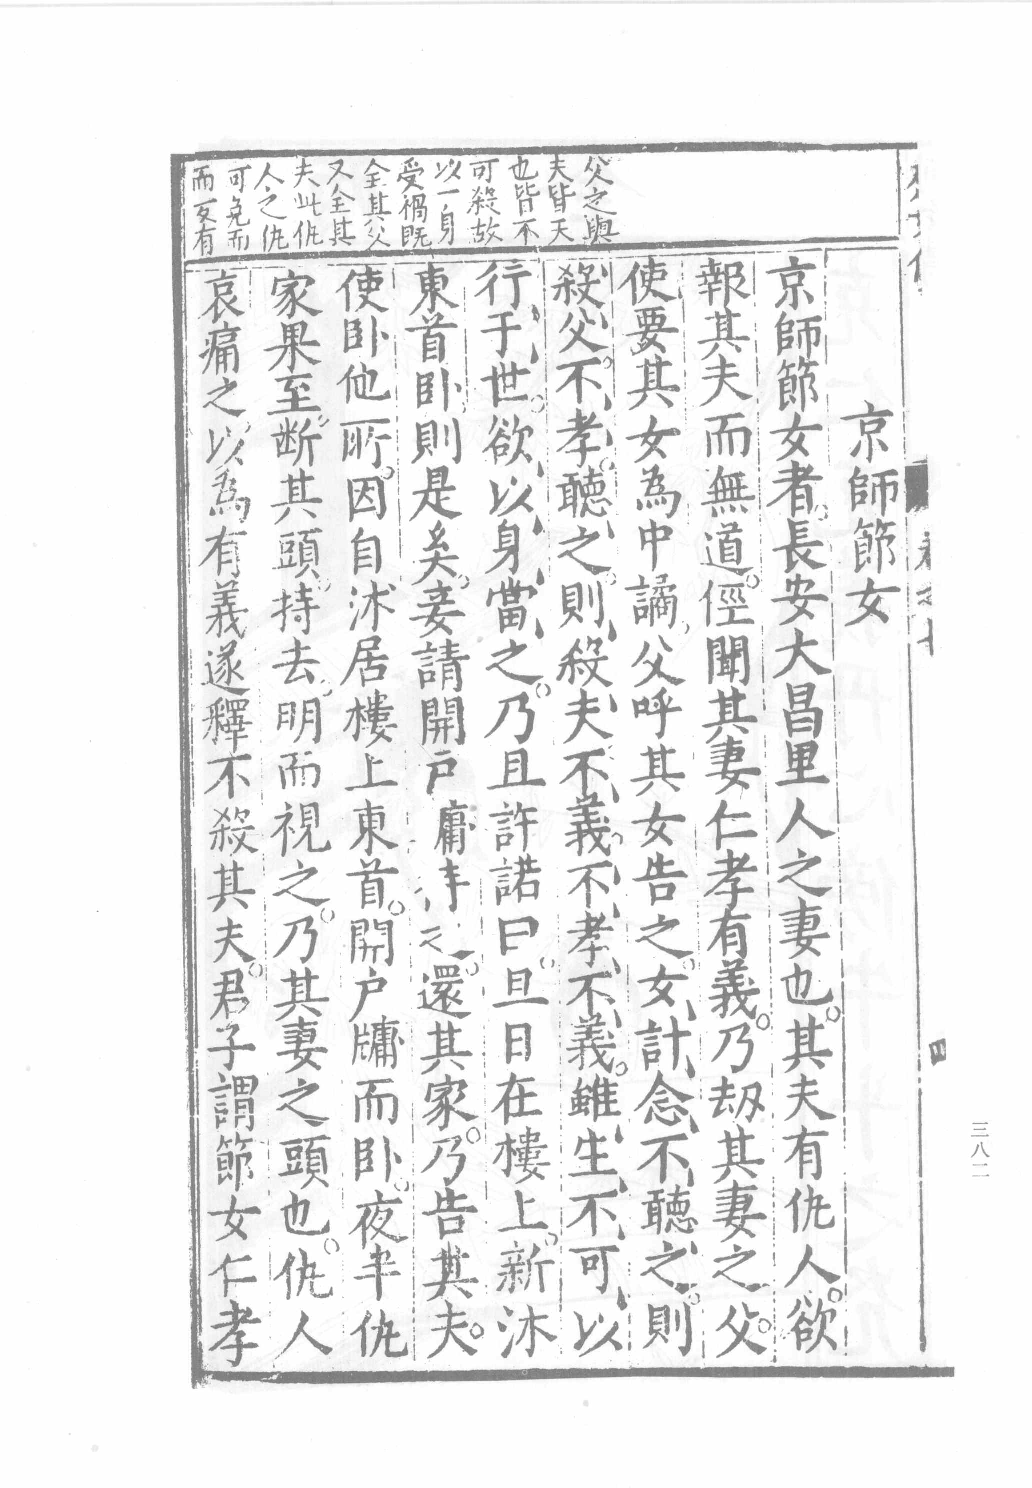 京師節女
京師節女者長安大昌里人之妻也其夫有仇人欲
報其夫而無道徑聞其妻仁孝有義乃劫其妻之父
使要其女為中譎父呼其女告之女計念不聽之則
殺父不孝聽之則殺夫不義不孝不義雖生不可以
行于世欲以身當之乃且許諾曰旦日在樓上新沐
東首臥則是矣妾請開戶牖待之還其家乃告其夫
使臥他所因自沐居樓上東首開戶牖而臥夜半仇
家果至斷其頭持去明而視之乃其妻之頭也仇人
哀痛之以為有義遂釋不殺其夫君子謂節女仁孝
父之與
夫皆天
也皆不
可殺故
以一身
受禍既
全其父
又全其
夫此仇
人之仇
可免而
而反有
四
三八二